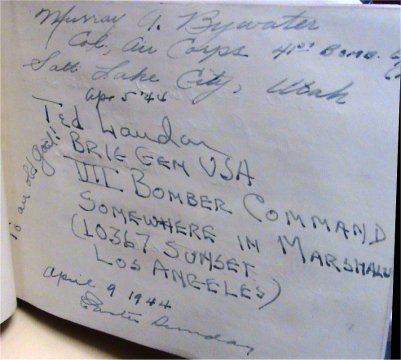 Murray A. Bywater
Col, Air Corps 41st Bomb.
Salt Lake City, Utah
Apr 5 '44
Ted Landon
BRIG GEN USA
VII BOMBER COMMAND
SOMEWHERE IN MARSHALLS
(10367 SUNSET
LOS ANGELES)
To an old
April 9 1944
Easter Sunday